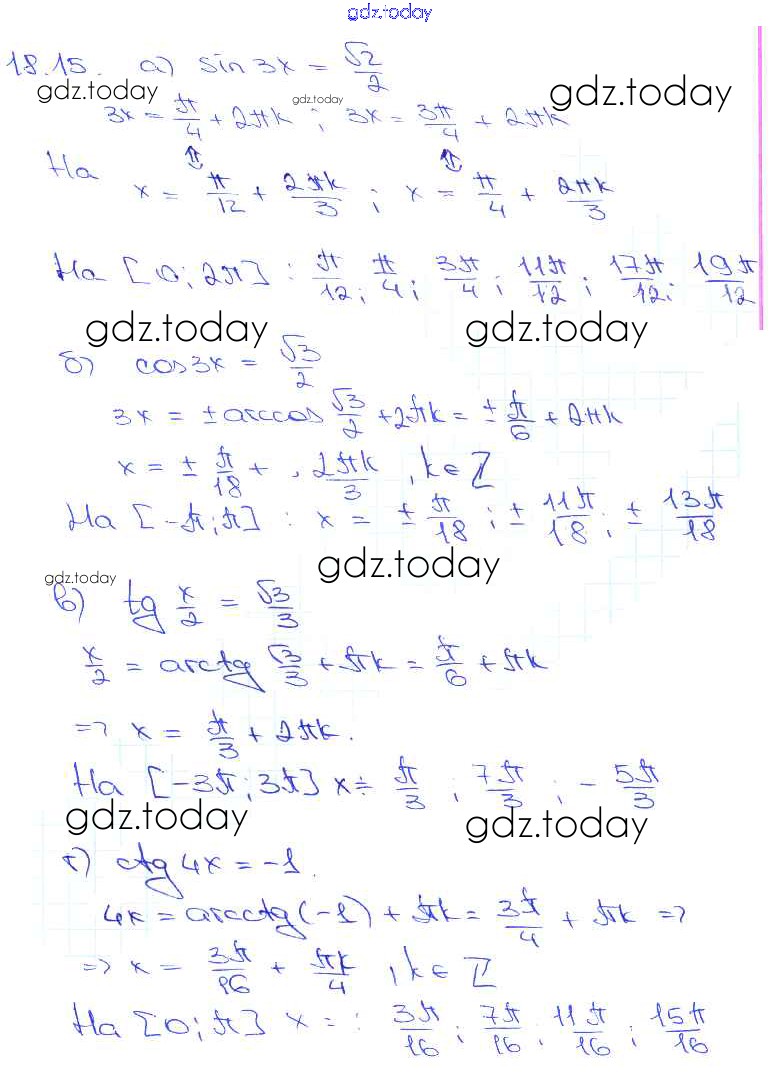 gdz.today
18.15. а) sin 3x = √2/2
gdz.today gdz.today gdz.today
3x = π/4 + 2πk ; 3x = 3π/4 + 2πk
На
x = π/12 + 2πk/3 ; x = π/4 + 2πk/3
На [0; 2π] : π/12; π/4; 3π/4; 11π/12; 17π/12; 19π/12
gdz.today gdz.today
б) cos 3x = √3/2
3x = ± arccos √3/2 + 2πk = ± π/6 + 2πk
x = ± π/18 + 2πk/3 , k ∈ Z
На [-π; π] : x = ± π/18 ; ± 11π/18 ; ± 13π/18
gdz.today
gdz.today
в) tg x/2 = √3/3
x/2 = arctg √3/3 + πk = π/6 + πk
=> x = π/3 + 2πk.
На [-3π; 3π] x ÷ π/3 ; 7π/3 ; - 5π/3
gdz.today gdz.today
г) ctg 4x = -1.
4x = arcctg(-1) + πk = 3π/4 + πk =>
=> x = 3π/16 + πk/4 , k ∈ Z
На [0; π] x = : 3π/16 ; 7π/16 ; 11π/16 ; 15π/16